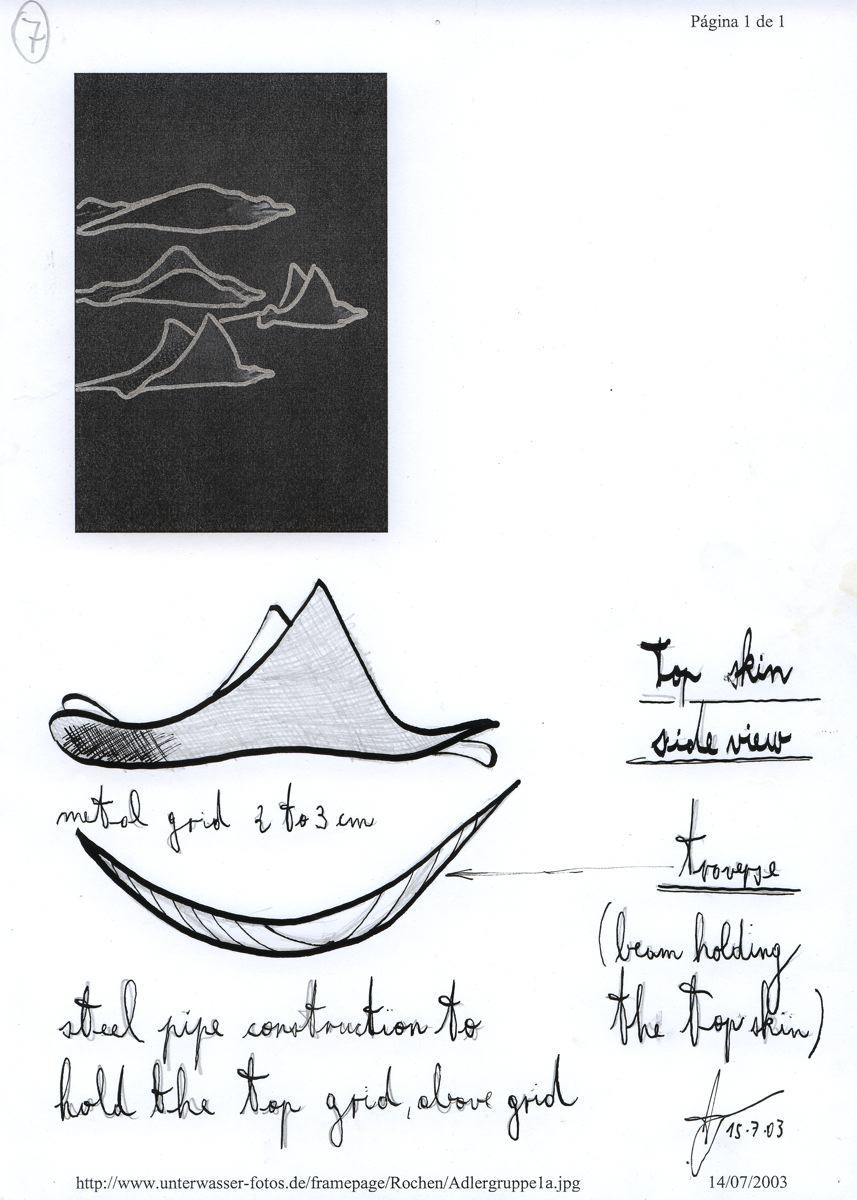 7
Página 1 de 1
Top skin
side view
metal grid 2 to 3 cm
traverse
(beam holding
the top skin)
steel pipe construction to
hold the top grid, above grid
15.7.03
http://www.unterwasser-fotos.de/framepage/Rochen/Adlergruppe1a.jpg
14/07/2003